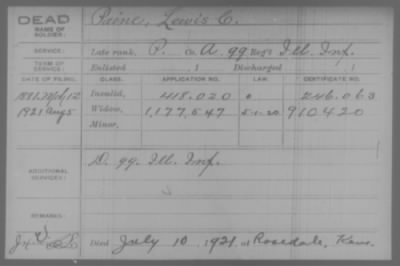 DEAD
NAME OF SOLDIER:
Paine, Lewis C.
SERVICE: Late rank, P. Co. A. 99 Reg't Ill. Inf.
TERM OF SERVICE: Enlisted , 1 Discharged , 1
DATE OF FILING. CLASS. APPLICATION NO. LAW. CERTIFICATE NO.
1881, Mch, 12 Invalid, 418.020 246.063
1921 Aug 5 Widow, 1,177,547 5-1-20 910420
Minor,
ADDITIONAL SERVICES: D. 99. Ill. Inf.
REMARKS:
Died July 10, 1921, at Rosedale, Kans.